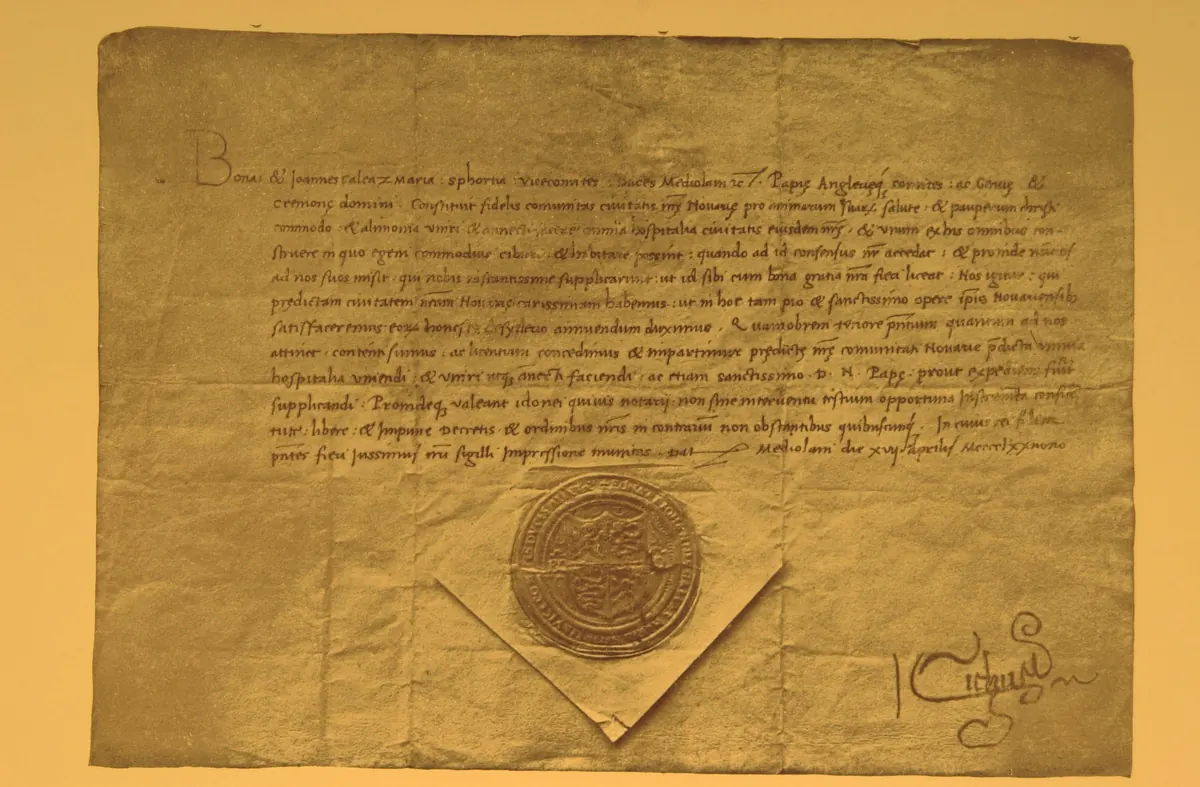 Bona: & Joannes Galeaz Maria: Sphortia: Vicecomites: Duces Mediolani &c. Papię Anglerięq; comites: ac Genuę &
Cremonę domini. Constituit fidelis comunitas civitatis nrę Novarię pro animarum suarz salute: & pauperum christi
commodo: & alimonia uniri & annecti facere omnia hospitalia civitatis eiusdem nrę: & unum ex his omnibus con-
struere in quo egeni commodius cibari: & habitare possint: quando ad id consensus nr accedat: & proinde
ad nos suos misit: qui nobis instantissime supplicarunt: ut id sibi cum bona gratia nra fieri liceat: Nos igitur: qui
predictam civitatem nram Novarię carissimam habemus: ut in hoc tam pio & sanctissimo opere ipis Novariensib
satisfaceremus eorz honesto desyderio annuendum duximus. Quamobrem tenore pntium quantum ad nos
attinet: contenti sumus: ac licentiam concedimus & impartimur prędictę nrę comunitati Novarie prdicta omnia
hospitalia uniendi: & uniri atq; annecti faciendi: ac etiam sanctissimo. D. N. Papę: prout expediens fuit
supplicandi. Proindeq; valeant idonei quivis notarij: non sine interventu testium opportuna Instrumta confice
tute: libere: & Impune Decretis & ordinibus nris in contrariū non obstantibus quibuscunq;. In cuius rei
pntes fieri Iussimus nri sigilli Impressione munitas. Dat Mediolani die xvij Aprilis Mcccclxxnono